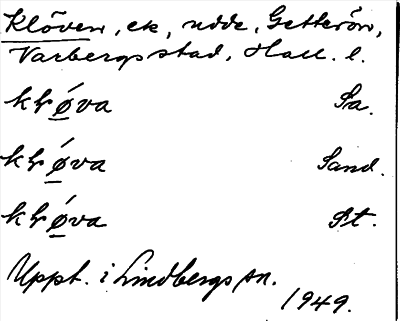 Klöven, ek, udde, Getterön,
Varbergs stad, Hall. l.
kłǿ̲va Sa.
kłǿ̲va Sand.
kłǿ̲va St.
Uppt. i Lindbergs sn.
1949.